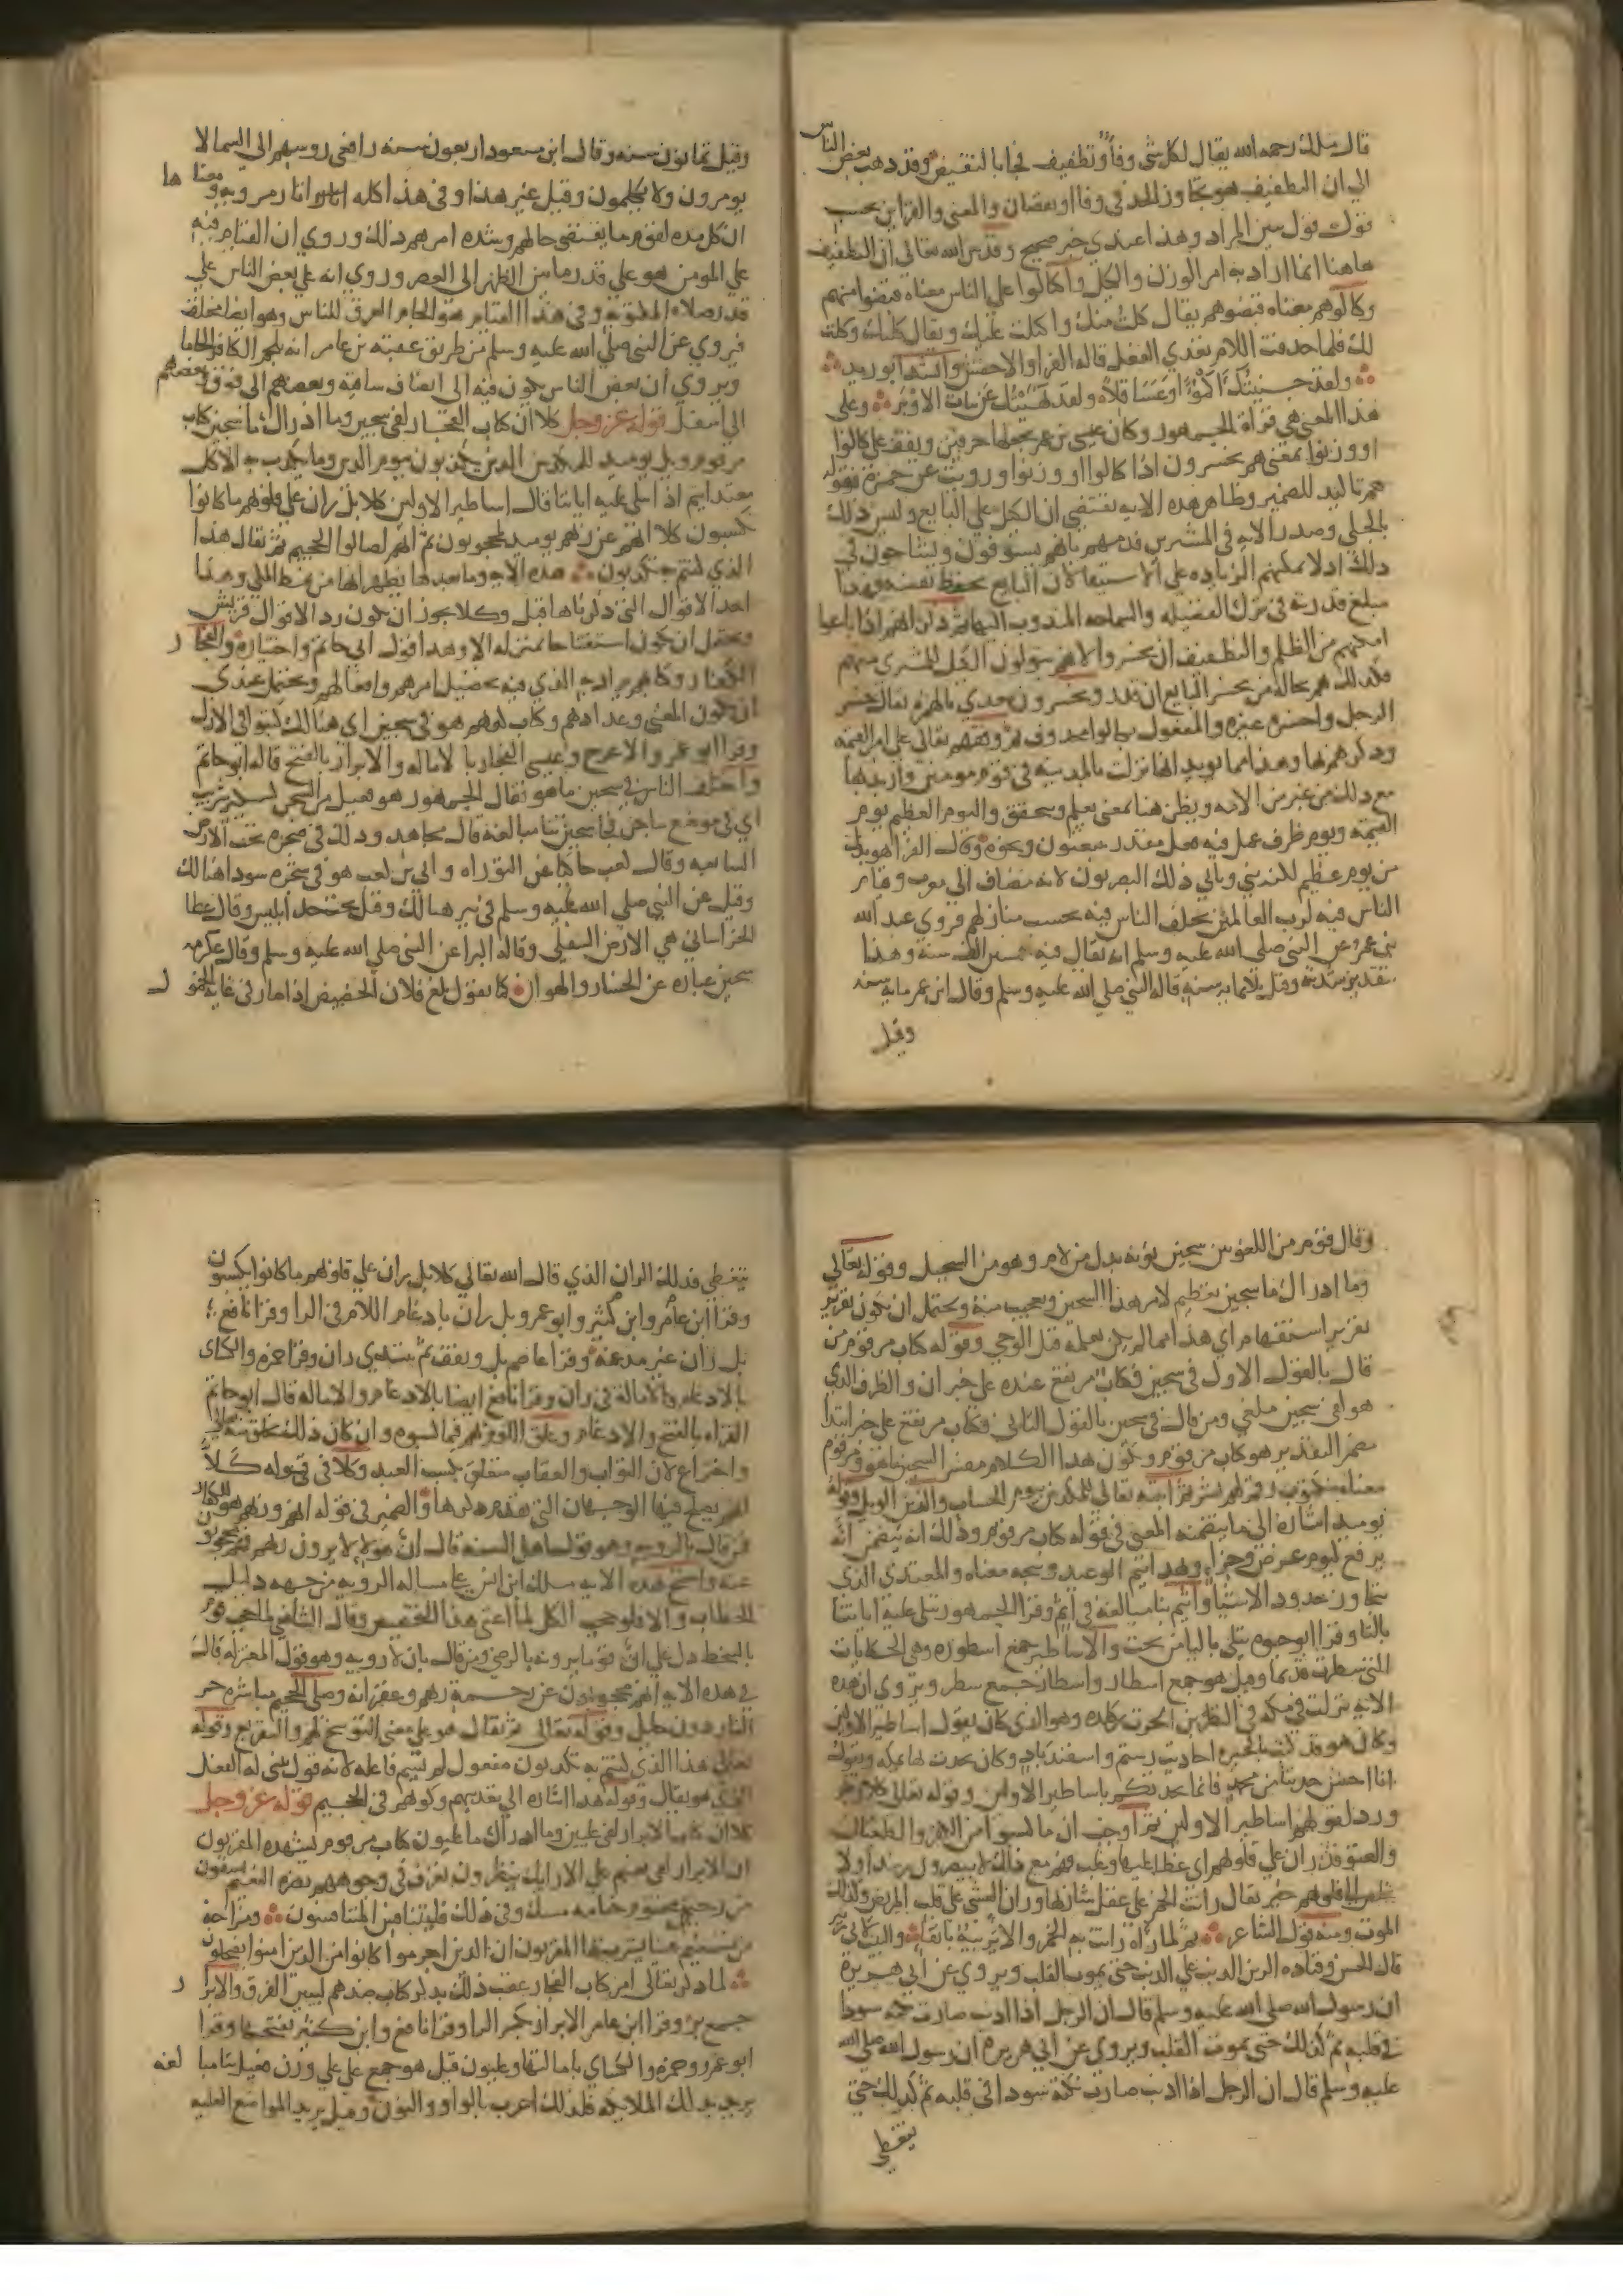 قال ملك رحمه الله يقال لكل شي وفاً وتطفيف فجابا لنقيض وقد ذهب بعض الناس
الى ان التطفيف هو تجاوز الحد في وفا او نقصان والمعنى والقراين بحسب
قول قول يبين المراد وهذا عندي خبر صحيح وقد بين الله تعالى ان التطفيف
هاهنا انما اراد به امر الوزن والكيل واكالوا على الناس معناه قبضوا منهم
وكالوهم معناه قبضوهم يقال كلت منك واكلت عليك ويقال كلتك وكلت
لك فلما حذفت اللام تعدي الفعل قاله الفرا والاخفش وانشد ابو زيد
ولقد جنيتك اكموًا وعساقلا ولقد نهيتك عن بنات الاوبر وعلى
هذا المعنى هي قراة الجمهور وكان عيسى بن عمر يجعلها حرفين ويقف على كالوا
او وزنوا بمعنى هم يخسرون اذا كالوا او وزنوا ورويت عن حمزة فقوله
هم تاكيد للضمير وظاهر هذه الايه يقتضي ان الكيل على البايع وليس ذلك
بالجلي وصدر الايه في المشترين فذمهم بانهم يستوفون ويشاحون في
ذلك اذ لا يمكنهم الزياده على الاستيفا لان البايع يحفظ نفسه فهذا
مبلغ قدرته في ترك الفضيله والسماحه المندوب اليها ثم ذكر انهم اذا باعوا
امكنهم من الظلم والتطفيف ان يخسروا لانهم يتولون الكيل للمشتري منهم
فلذلك هم بحاله من يخسر البايع ان قدر ويخسرون معدي بالهمزه يقال خسر
الرجل واخسره غيره والمفعول بكالوا محذوف ثم وقفهم تعالى على امر القيمه
وذكرهم بها وهذا مما يويد انها نزلت بالمدينه في قوم مومنين واريد بها
مع ذلك من غبر من الامه ويظن هنا بمعنى يعلم ويتحقق واليوم العظيم يوم
القيمه ويوم ظرف عمل فيه فعل مقدر يبعثون ونحوه وقال الفرا هو بدل
من يوم عظيم لكنه بني ويابي ذلك البصريون لانه مضاف الى معرب وقيام
الناس فيه لرب العالمين يختلف الناس فيه بحسب منازلهم فروي عبد الله
بن عمر عن النبي صلى الله عليه وسلم انه يقال فيه خمسين الف سنة وهذا
بتقدير شدته وقيل ثلاثمايه سنه قاله النبي صلى الله عليه وسلم وقال ابن عمر مايه سنه
وقيل
وقيل ثمانون سنه وقال ابن مسعود اربعون سنه رافعي روسهم الى السما لا
يومرون ولا يكلمون وقيل غير هذا وفي هذا كله اثار مرويه ومعناها
ان لكل مده لقوم ما يقتضي حالهم وشده امرهم ذلك وروي ان القيام فيه
على المومن هو على قدر ما بين الظهر الى العصر وروي انه على بعض الناس على
قدر صلاه المكتوبه وفي هذا القيام هو الجام العرق للناس وهو ايضا مختلف
فيروي عن النبي صلى الله عليه وسلم من طريق عقبه بن عامر انه يلجم الكافر الجاما
ويروي ان بعض الناس يكون فيه الى انصاف ساقيه وبعضهم الى فوق وبعضهم
الى اسفل قوله عز وجل كلا ان كتاب الفجار لفي سجين وما ادراك ما سجين كتاب
مرقوم ويل يوميذ للمكذبين الذين يكذبون بيوم الدين وما يكذب به الا كل
معتد اثيم اذا تتلى عليه اياتنا قال اساطير الاولين كلا بل ران على قلوبهم ما كانوا
يكسبون كلا انهم عن ربهم يوميذ لمحجوبون ثم انهم لصالوا الجحيم ثم يقال هذا
الذي كنتم به تكذبون هذه الايه وما بعدها يظهر انها من نمط المكي وهذا
احد الاقوال التي ذكرناها قبل وكلا يجوز ان يكون رد الاقوال قريش
ويحتمل ان يكون استفتاحا بمنزله الا وهذا قول ابي حاتم واختياره والفجار
الكفار وكتابهم يراد به الذي فيه تحصيل امرهم وافعالهم ويحتمل عندي
ان يكون المعنى وعدادهم وكتاب كونهم هو في سجين اي هنالك كتبوا في الازل
وقرا ابو عمرو والاعرج وعيسى الفجار بالاماله والابرار بالفتح قاله ابو حاتم
واختلف الناس في سجين ما هو فقال الجمهور هو فعيل من السجن كسكير وشريب
اي في موضع ساجن فجا سجين بنا مبالغه قال مجاهد وذلك في صخره تحت الارض
السابعه وقال كعب حاكيا عن التوراه وابي بن كعب هو في شجره سودا هنالك
وقيل عن النبي صلى الله عليه وسلم في بير هنالك وقيل تحت خد ابليس وقال عطا
الخراساني هي الارض السفلى وقاله البرا عن النبي صلى الله عليه وسلم وقال عكرمه
سجين عباره عن الخسار والهوان كما يقول بلغ فلان الحضيض اذا صار في غايه الخمول
وقال قوم من اللغويين سجين نونه بدل من لام وهو من السجيل وقوله تعالى
وما ادراك ما سجين تعظيم لامر هذا السجين وتعجيب منه ويحتمل ان يكون تقرير
تقرير استفهام اي هذا مما لم يكن يعلمه قبل الوحي وقوله كتاب مرقوم من
قال بالقول الاول في سجين فكتاب مرتفع عنده على خبر ان والظرف الذي
هو لفي سجين ملغي ومن قال في سجين بالقول الثاني فكتاب مرتفع على خبر ابتدا
مضمر التقدير هو كتاب مرقوم ويكون هذا الكلام مفسر السجين ما هو ومرقوم
معناه مكتوب رقم لهم بشر ثم اثبت تعالى للمكذبين بيوم الحساب والدين الويل وقوله
يوميذ اشاره الى ما يتضمنه المعنى في قوله كتاب مرقوم وذلك انه يتضمن انه
يرتفع ليوم عرض وجزا وبهذا يتم الوعيد ويتجه معناه والمعتدي الذي
يتجاوز حدود الاشيا واثيم بنا مبالغه في اثم وقرا الجمهور تتلى عليه اياتنا
بالتا وقرا ابو حيوه يتلى باليا من تحت والاساطير جمع اسطوره وهي الحكايات
التي سطرت قديما وقيل هو جمع اسطار واسطار جمع سطر ويروي ان هذه
الايه نزلت في مكه في النضر بن الحرث بن كلده وهو الذي كان يقول اساطير الاولين
وكان هو قد كتب بالحيره احاديث رستم واسفندياد وكان يحدث بها بمكه ويقول
انا احسن حديثا من محمد فانما يحدثكم باساطير الاولين وقوله تعالى كلا زجر
ورد لقولهم اساطير الاولين ثم اوجب ان ما كسبوا من الكفر والطغيان
والعتو قد ران على قلوبهم اي غطا عليها وغلب فهم مع ذلك لا يبصرون رشدا ولا
يخلص الى قلوبهم خير يقال رانت الخمر على عقل شاربها وران الغشي على قلب المريض وكذلك
الموت ومنه قول الشاعر ثم لما راه رانت به الخمر والا ترينه باتقا والبيت لابي زبيد
قال الحسن وقتاده الرين الذنب على الذنب حتى يموت القلب ويروي عن ابي هريرة
ان رسول الله صلى الله عليه وسلم قال ان الرجل اذا اذنب صارت نكته سودا
في قلبه ثم كذلك حتى يموت القلب ويروي عن ابي هريره ان رسول الله صلى الله
عليه وسلم قال ان الرجل اذا اذنب صارت نكتة سودا في قلبه ثم كذلك حتى
يتغطى
يتغطى فذلك الران الذي قال الله تعالى كلا بل ران على قلوبهم ما كانوا يكسبون
وقرا ابن عامر وابن كثير وابو عمرو بل ران بادغام اللام في الرا وقرا نافع
بل ران غير مدغمه وقرا عاصم بل ويقف ثم يبتدي ران وقرا حمزه والكساي
بالادغام والامالة في ران وقرا نافع ايضا بالادغام والاماله قال ابو حاتم
القراه بالفتح والادغام وعلق اللوم بهم فيما كسبوه وان كان ذلك بخلق منه تعالى
واختراع لان الثواب والعقاب متعلق بكسب العبد وكلا في قوله كلا
انهم يصلح فيها الوجهان التي تقدم ذكرها والضمير في قوله انهم عن ربهم هو للكفار
فمن قال بالرويه وهو قول اهل السنه قال ان هولا لا يرون ربهم فهم محجوبون
عنه واحتج بهذه الايه ملك ابن انس على مساله الرويه من جهه دليل
الخطاب والا فلو حجب الكل لما اغنى هذا التخصيص وقال الشافعي لما حجب قوم
بالسخط دل على ان قوما يرونه بالرضى ومن قال بان لا رويه وهو قول المعتزله قال
في هذه الايه انهم محجوبون عن رحمة ربهم وغفرانه وصلى الجحيم مباشره حر
النار دون حايل وقوله تعالى ثم يقال هو على معنى التوبيخ لهم والتقريع وقوله
تعالى هذا الذي كنتم به تكذبون مفعول لم يسم فاعله لانه قول بني له الفعل
الذي هو يقال وقوله هذا اشاره الى تعذيبهم وكونهم في الجحيم قوله عز وجل
كلا ان كتاب الابرار لفي عليين وما ادراك ما عليون كتاب مرقوم يشهده المقربون
ان الابرار لفي نعيم على الارايك ينظرون تعرف في وجوههم نضره النعيم يسقون
من رحيق مختوم ختامه مسك وفي ذلك فليتنافس المتنافسون ومزاجه
من تسنيم عينا يشرب بها المقربون ان الذين اجرموا كانوا من الذين امنوا يضحكون
لما ذكر تعالى امر كتاب الفجار عقب ذلك بذكر كتاب ضدهم ليبين الفرق والابرار
جمع بر وقرا ابن عامر الابرار بكسر الرا وقرا نافع وابن كثير بفتحها وقرا
ابو عمرو وحمزه والكساي بامالتها وعليون قيل هو جمع على علي وزن فعيل بنا مبالغه
يريد بذلك الملايكه فلذلك اعرب بالواو والنون وقيل يريد المواضع العليه